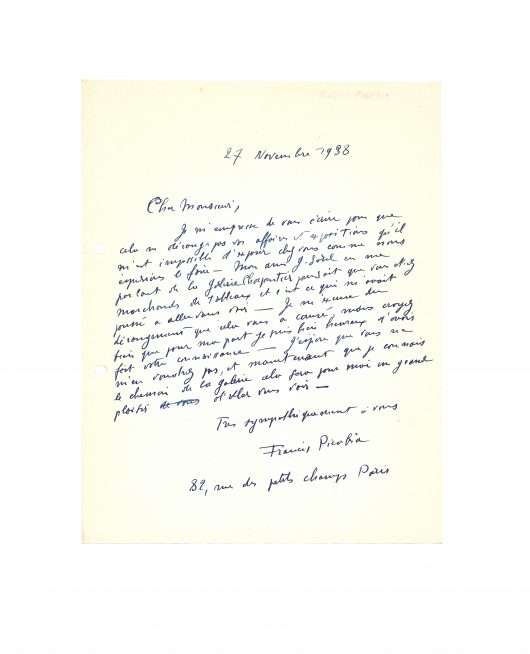 27 Novembre 1938
Cher Monsieur,
Je m'empresse de vous écrire pour que
cela ne dérange pas vos affaires et expositions qu'il
m'est impossible d'exposer chez vous comme nous
espérions le faire — Mon ami G. me
parlant de la Galerie Charpentier pensait que vous étiez
marchands de Tableaux et c'est ce qui m'avait
poussé a aller vous voir — Je m'excuse du
dérangement que cela vous a causé, mais croyez
bien que pour ma part je suis bien heureux d'avoir
fait votre connaissance — J'espère que vous ne
m'en voudrez pas, et maintenant que je connais
le chemin de la galerie cela sera pour moi un grand
plaisir d'aller vous voir —
Très sympathiquement à vous
Francis Picabia
82, rue des petits champs Paris